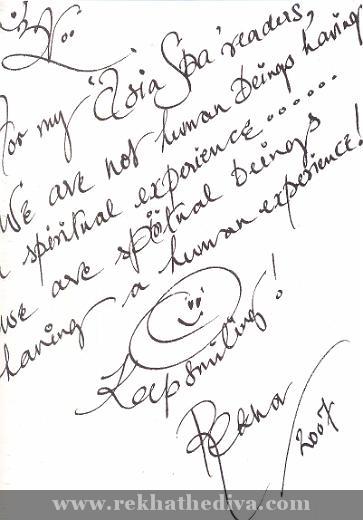 For my 'Asia Spa' readers,
We are not human beings having
a spiritual experience......
we are spiritual beings
having a human experience!
Keep smiling!
Rekha
2007
www.rekhathediva.com